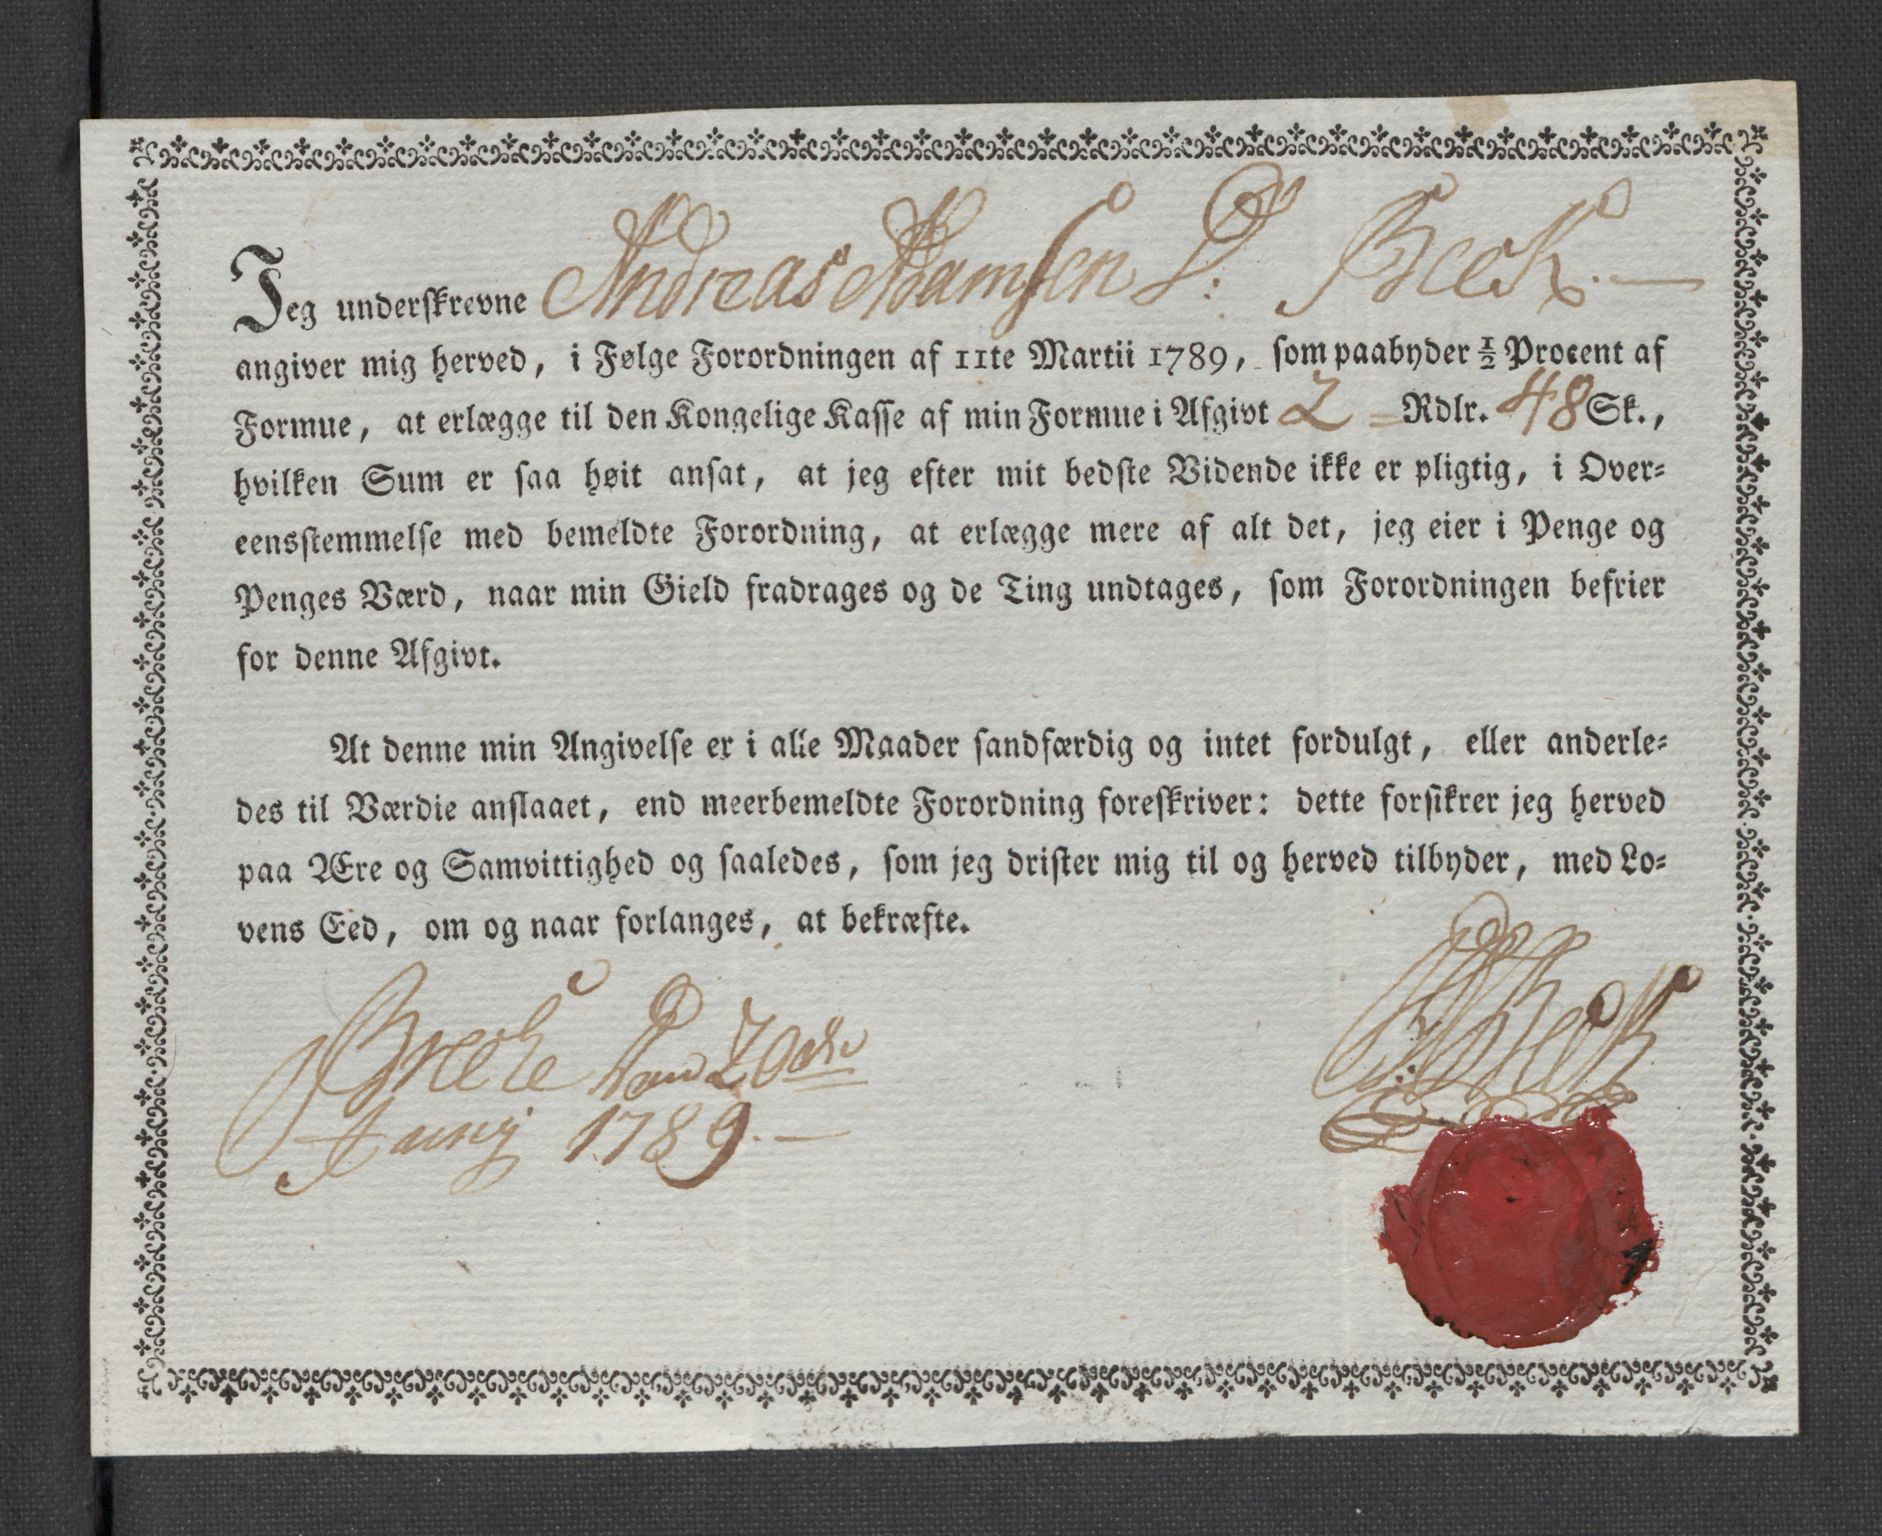 Jeg underskrevne Andreas Adamsen D: Beck.
angiver mig herved, i Følge Forordningen af 11te Martii 1789, som paabyder ½ Procent af
Formue, at erlægge til den Kongelige Kasse af min Formue i Afgivt 2 = Rdlr. 48 Sk.,
hvilken Sum er saa høit ansat, at jeg efter mit bedste Vidende ikke er pligtig, i Over-
eensstemmelse med bemeldte Forordning, at erlægge mere af alt det, jeg eier i Penge og
Penges Værd, naar min Gield fradrages og de Ting undtages, som Forordningen befrier
for denne Afgivt.
At denne min Angivelse er i alle Maader sandfærdig og intet fordulgt, eller anderle-
des til Værdie anslaaet, end meerbemeldte Forordning foreskriver: dette forsikrer jeg herved
paa Ære og Samvittighed og saaledes, som jeg drister mig til og herved tilbyder, med Lo-
vens Eed, om og naar forlanges, at bekræfte.
den 20de
Juny 1789.
Beck